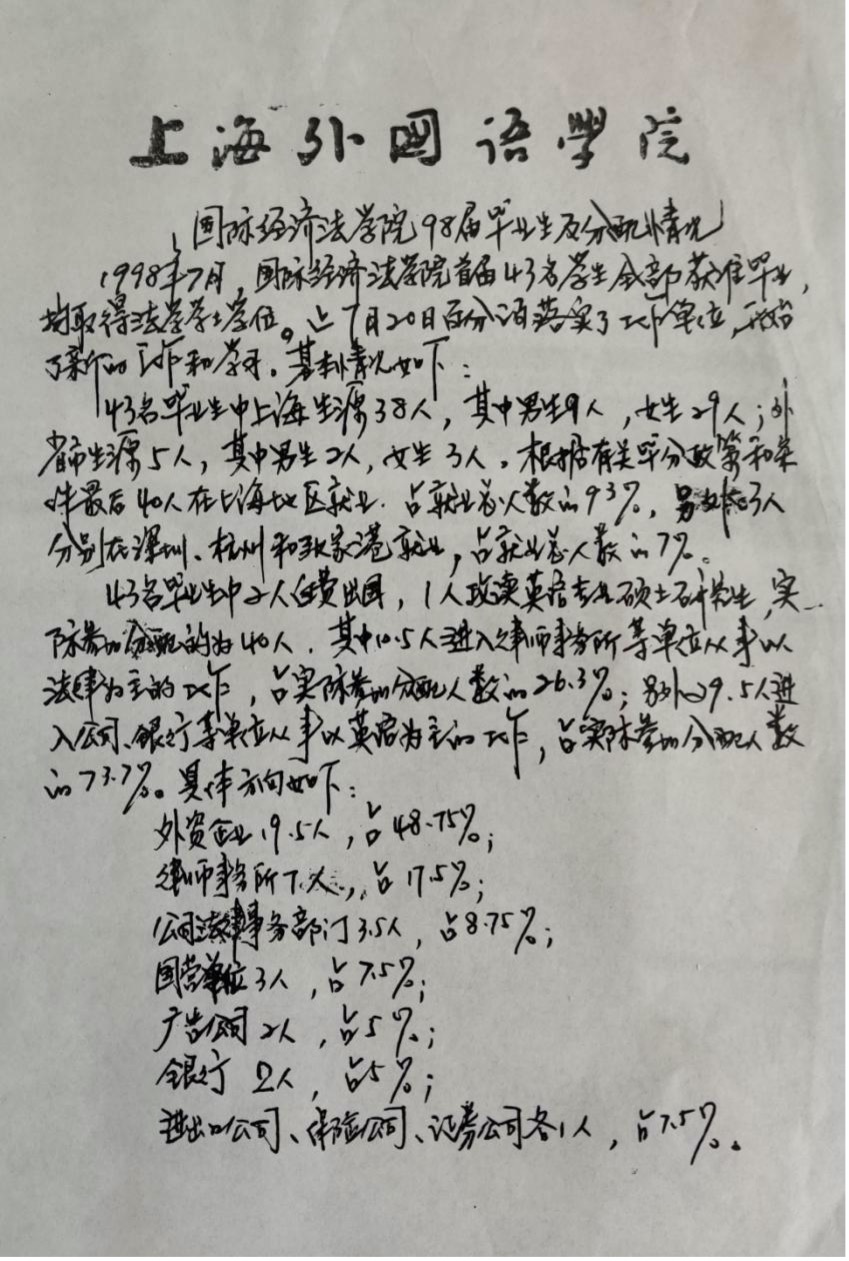 上海外国语学院
国际经济法学院98届毕业生及分配情况
1998年7月,国际经济法学院首届43名学生全部获准毕业,
均取得法学学士学位。上7月20日百分之百落实了工作单位,开始
了新的工作和学习。基本情况如下:
43名毕业生中上海生源38人,其中男生9人,女生29人;外
省市生源5人,其中男生2人,女生3人。根据有关毕分政策和条
件最后40人在上海地区就业.占就业总人数的93%,另外3人
分别在深圳、杭州和张家港就业,占就业总人数的7%。
43名毕业生中2人自费出国,1人攻读英语专业硕士研究生,实
际参加分配的为40人.其中10.5人进入律师事务所等单位从事以
法律为主的工作,占实际参加分配人数的26.3%;另外29.5人进
入公司、银行等单位从事以英语为主的工作,占实际参加分配人数
的73.7%。具体方向如下:
外资企业19.5人,占48.75%;
律师事务所7人,占17.5%;
公司法律事务部门3.5人,占8.75%;
国营单位3人,占7.5%;
广告公司2人,占5%;
银行 2人,占5%;
进出口公司、保险公司、证券公司各1人,占7.5%。